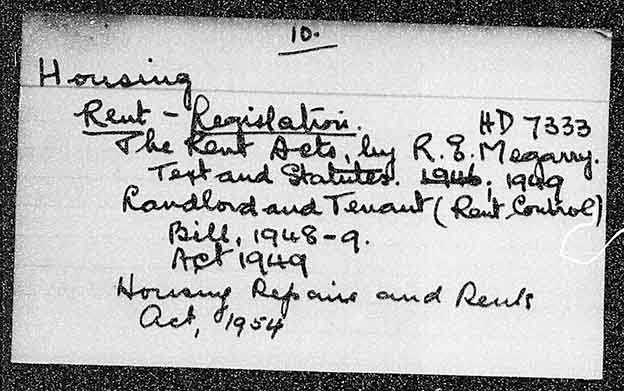 10.
Housing
Rent - Legislation. HD 7333
The Rent Acts, by R. E. Megarry.
Text and Statutes. 1946, 1949
Landlord and Tenant (Rent Control)
Bill, 1948-9.
Act 1949
Housing Repairs and Rents
Act, 1954